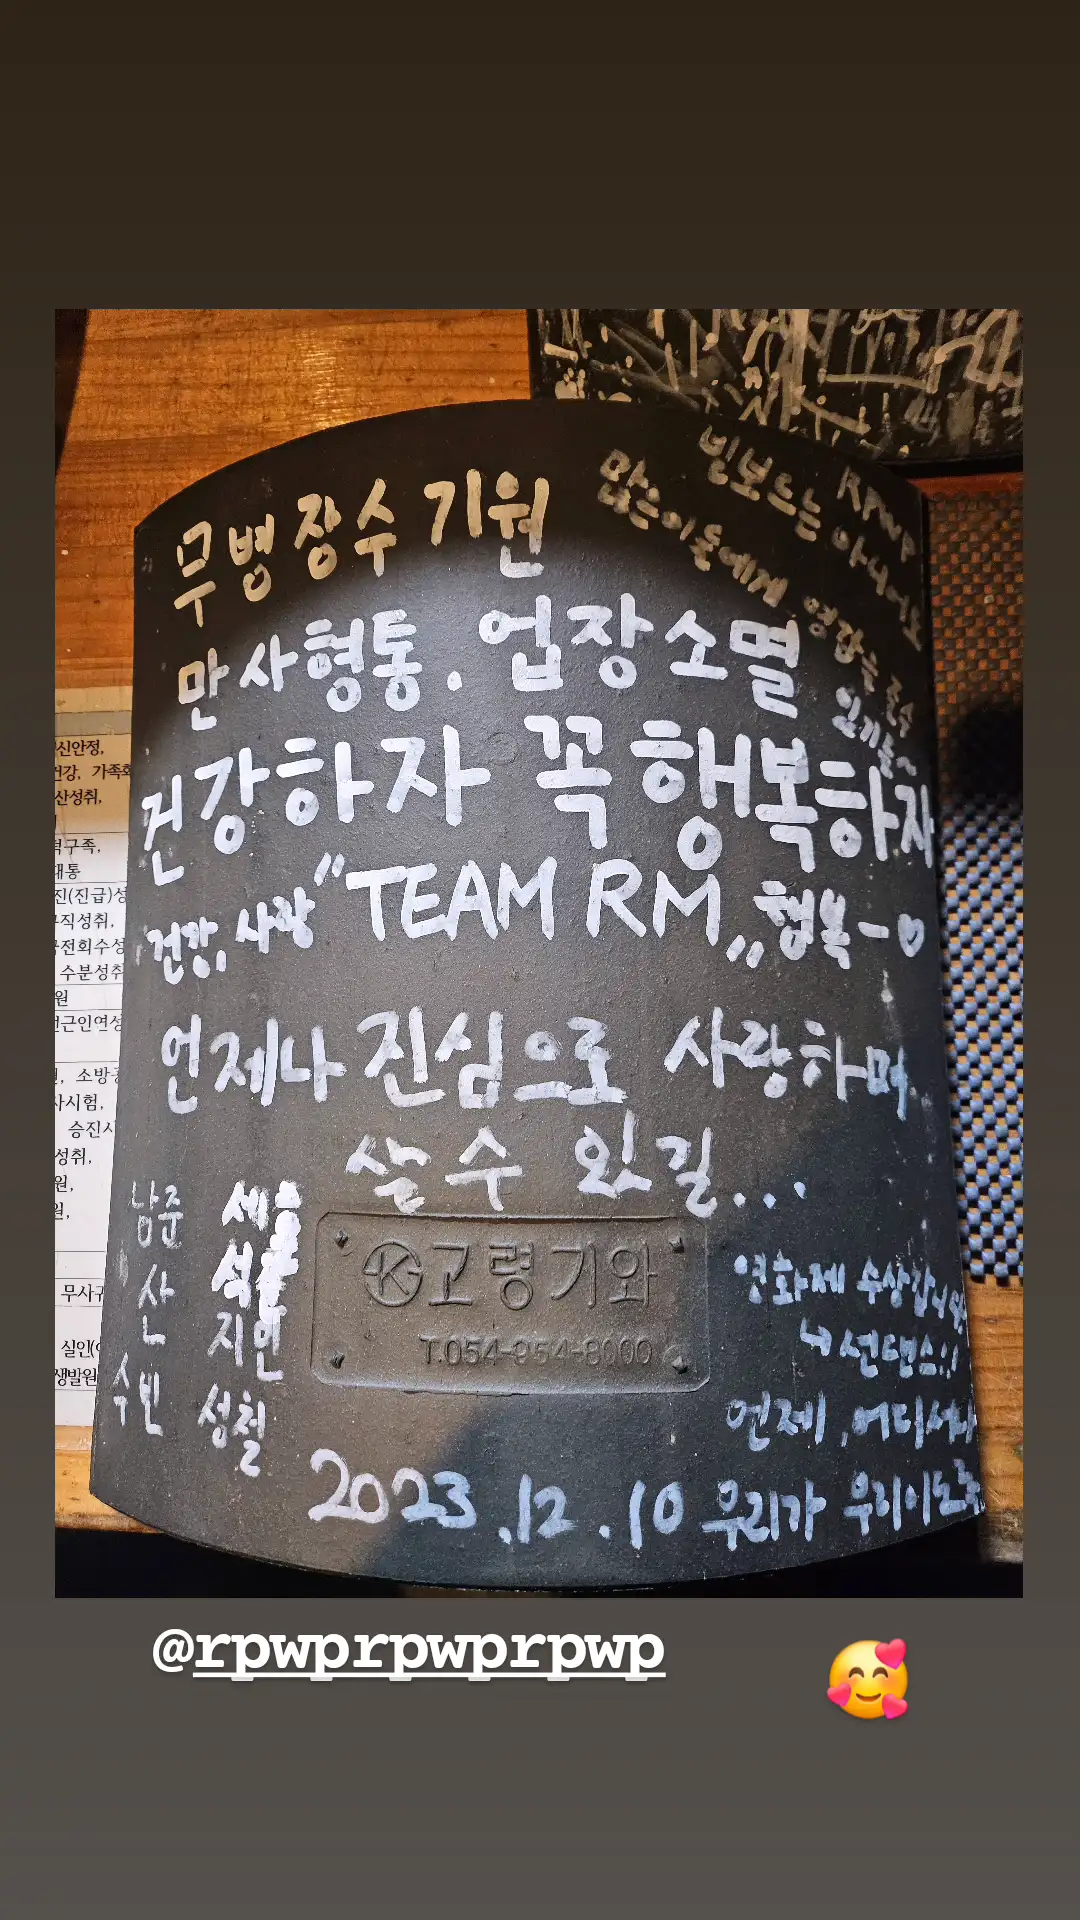 RPWP
빌보드는 아니어도
많은이들에게 영감을 준수
있기를~
무병장수 기원
만사형통. 업장소멸
건강하자 꼭 행복하자
건강, 사랑 "TEAM RM" 행복-♡
언제나 진심으로 사랑하며
살 수 있길...
남준
산
수빈
세
석
지인
성철
고령기와
T.054-954-8000
영화제 수상갑니다
↳ 선댄스!!
언제, 어디서나
우리가 우리이도록
2023.12.10
신안정,
건강, 가족화
산성취,
덕구족,
대통
진(진급)성
구직성취,
전회수성
수분성취
원
근인연성
소방공
사시험,
승진시
성취,
원,
원,
무사귀
실인(
생발원
@rpwprpwprpwp
🥰